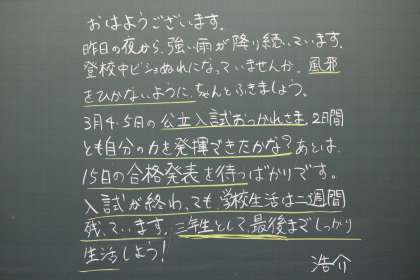 おはようございます。
昨日の夜から、強い雨が降り続いています。
登校中ビショぬれになっていませんか。風邪
をひかないように、ちゃんとふきましょう。
3月4・5日の公立入試おつかれさま。2日間
とも自分の力を発揮できたかな？あとは、
15日の合格発表を待つばかりです。
入試が終わっても、学校生活は二週間
残っています。三年生として、最後までしっかり
生活しよう！
浩介